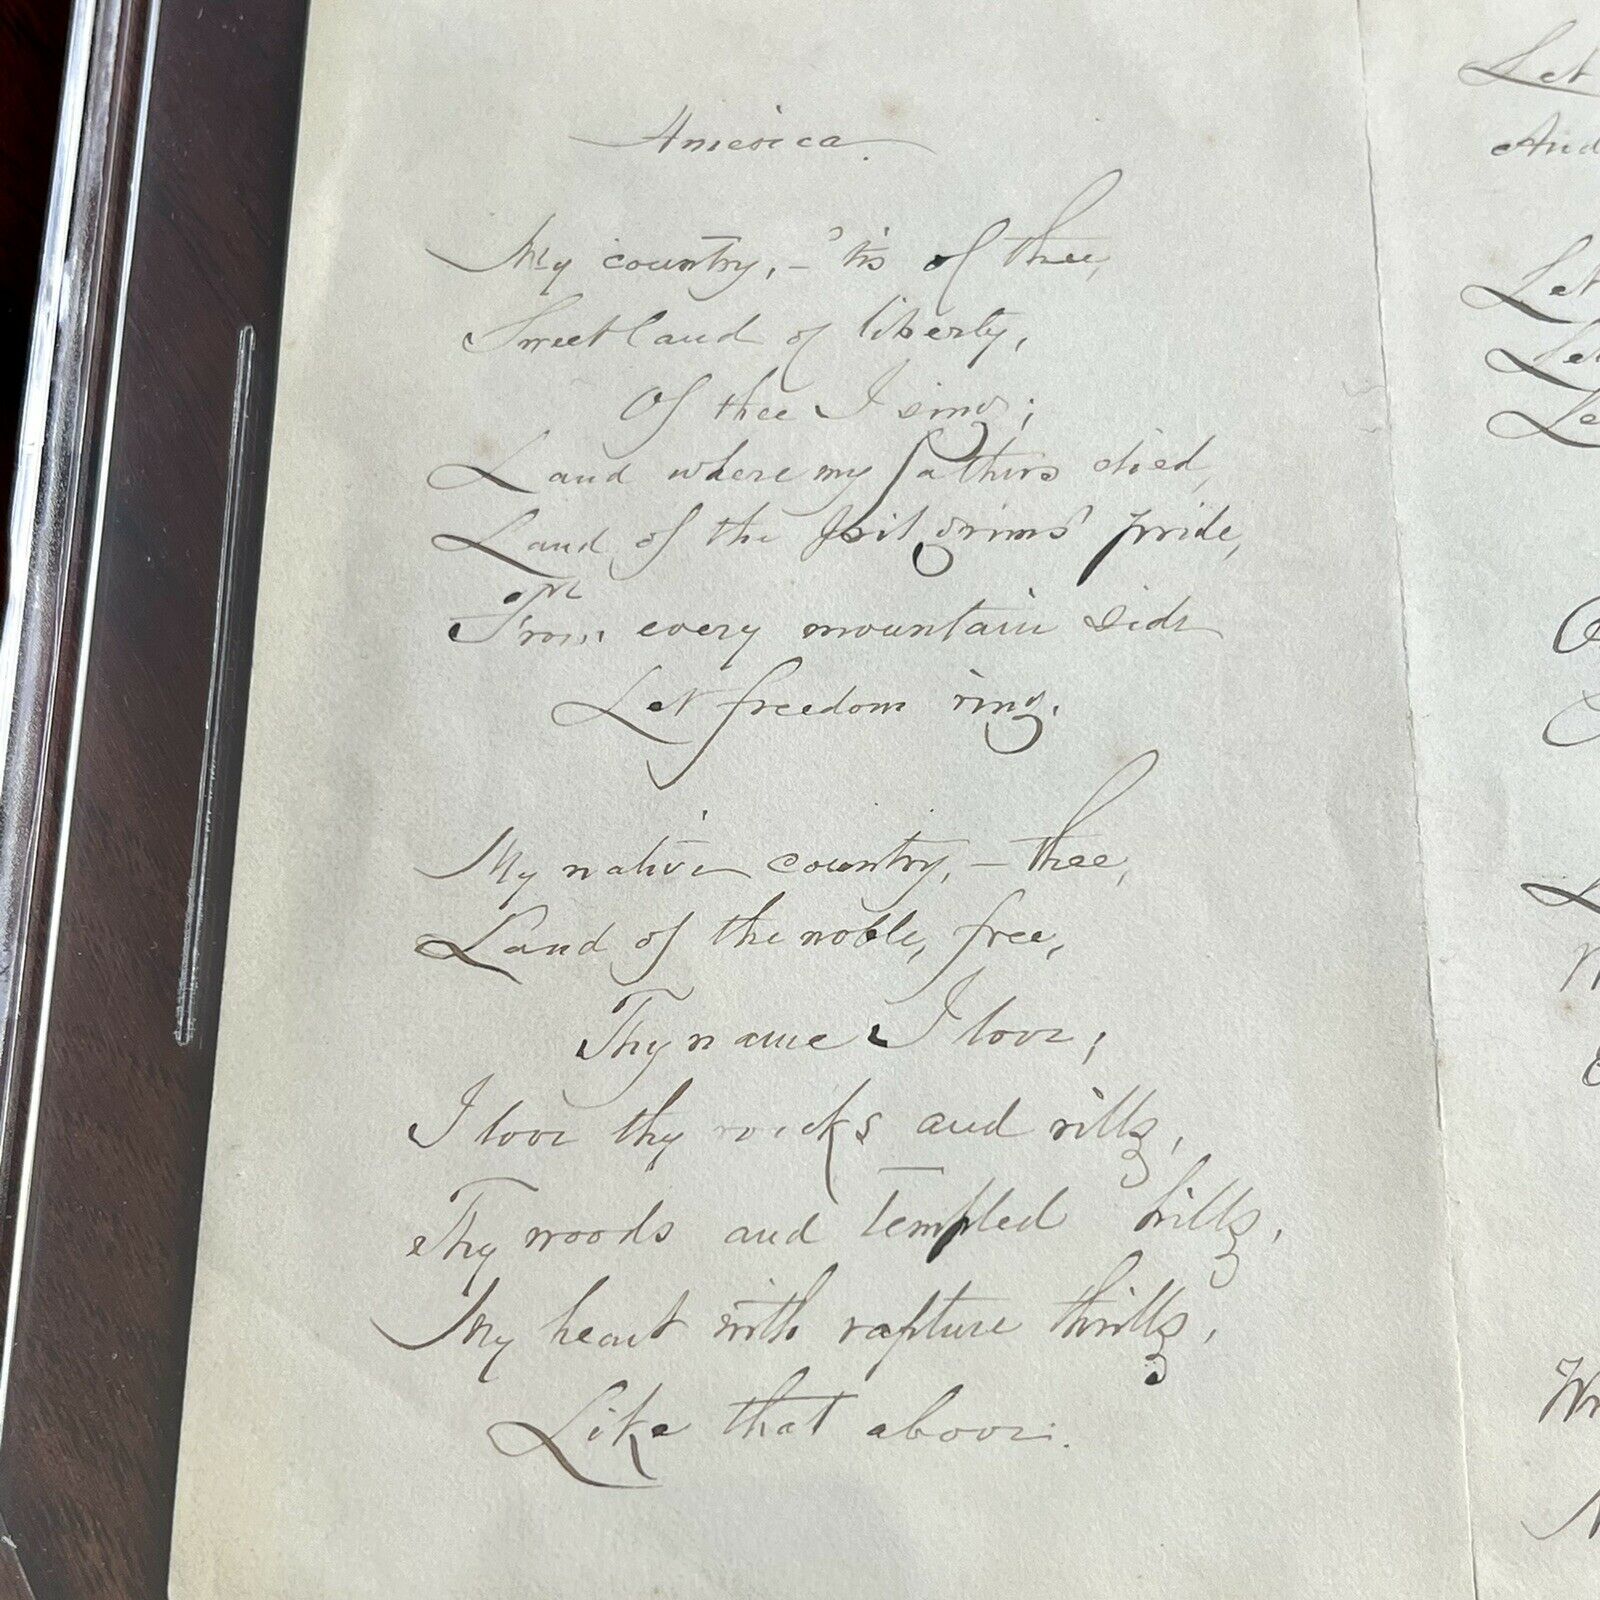 America.
My country, – 'tis of thee,
Sweet land of liberty,
Of thee I sing;
Land where my fathers died,
Land of the pilgrims' pride,
From every mountain side
Let freedom ring.
My native country, – thee,
Land of the noble, free,
Thy name I love;
I love thy rocks and rills,
Thy woods and templed hills,
My heart with rapture thrills,
Like that above.
Let
And
Let
Let